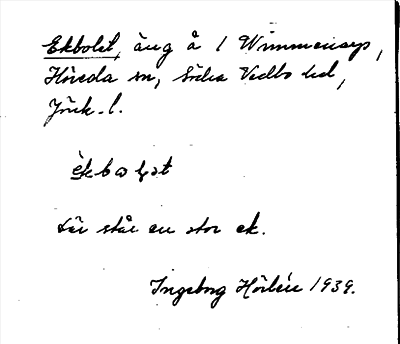 Ekbolet, äng å 1 Wimmenarp,
Höreda sn, Södra Vedbo hd,
Jönk. l.
Där står en stor ek.
Ingeborg Hörlén 1939.